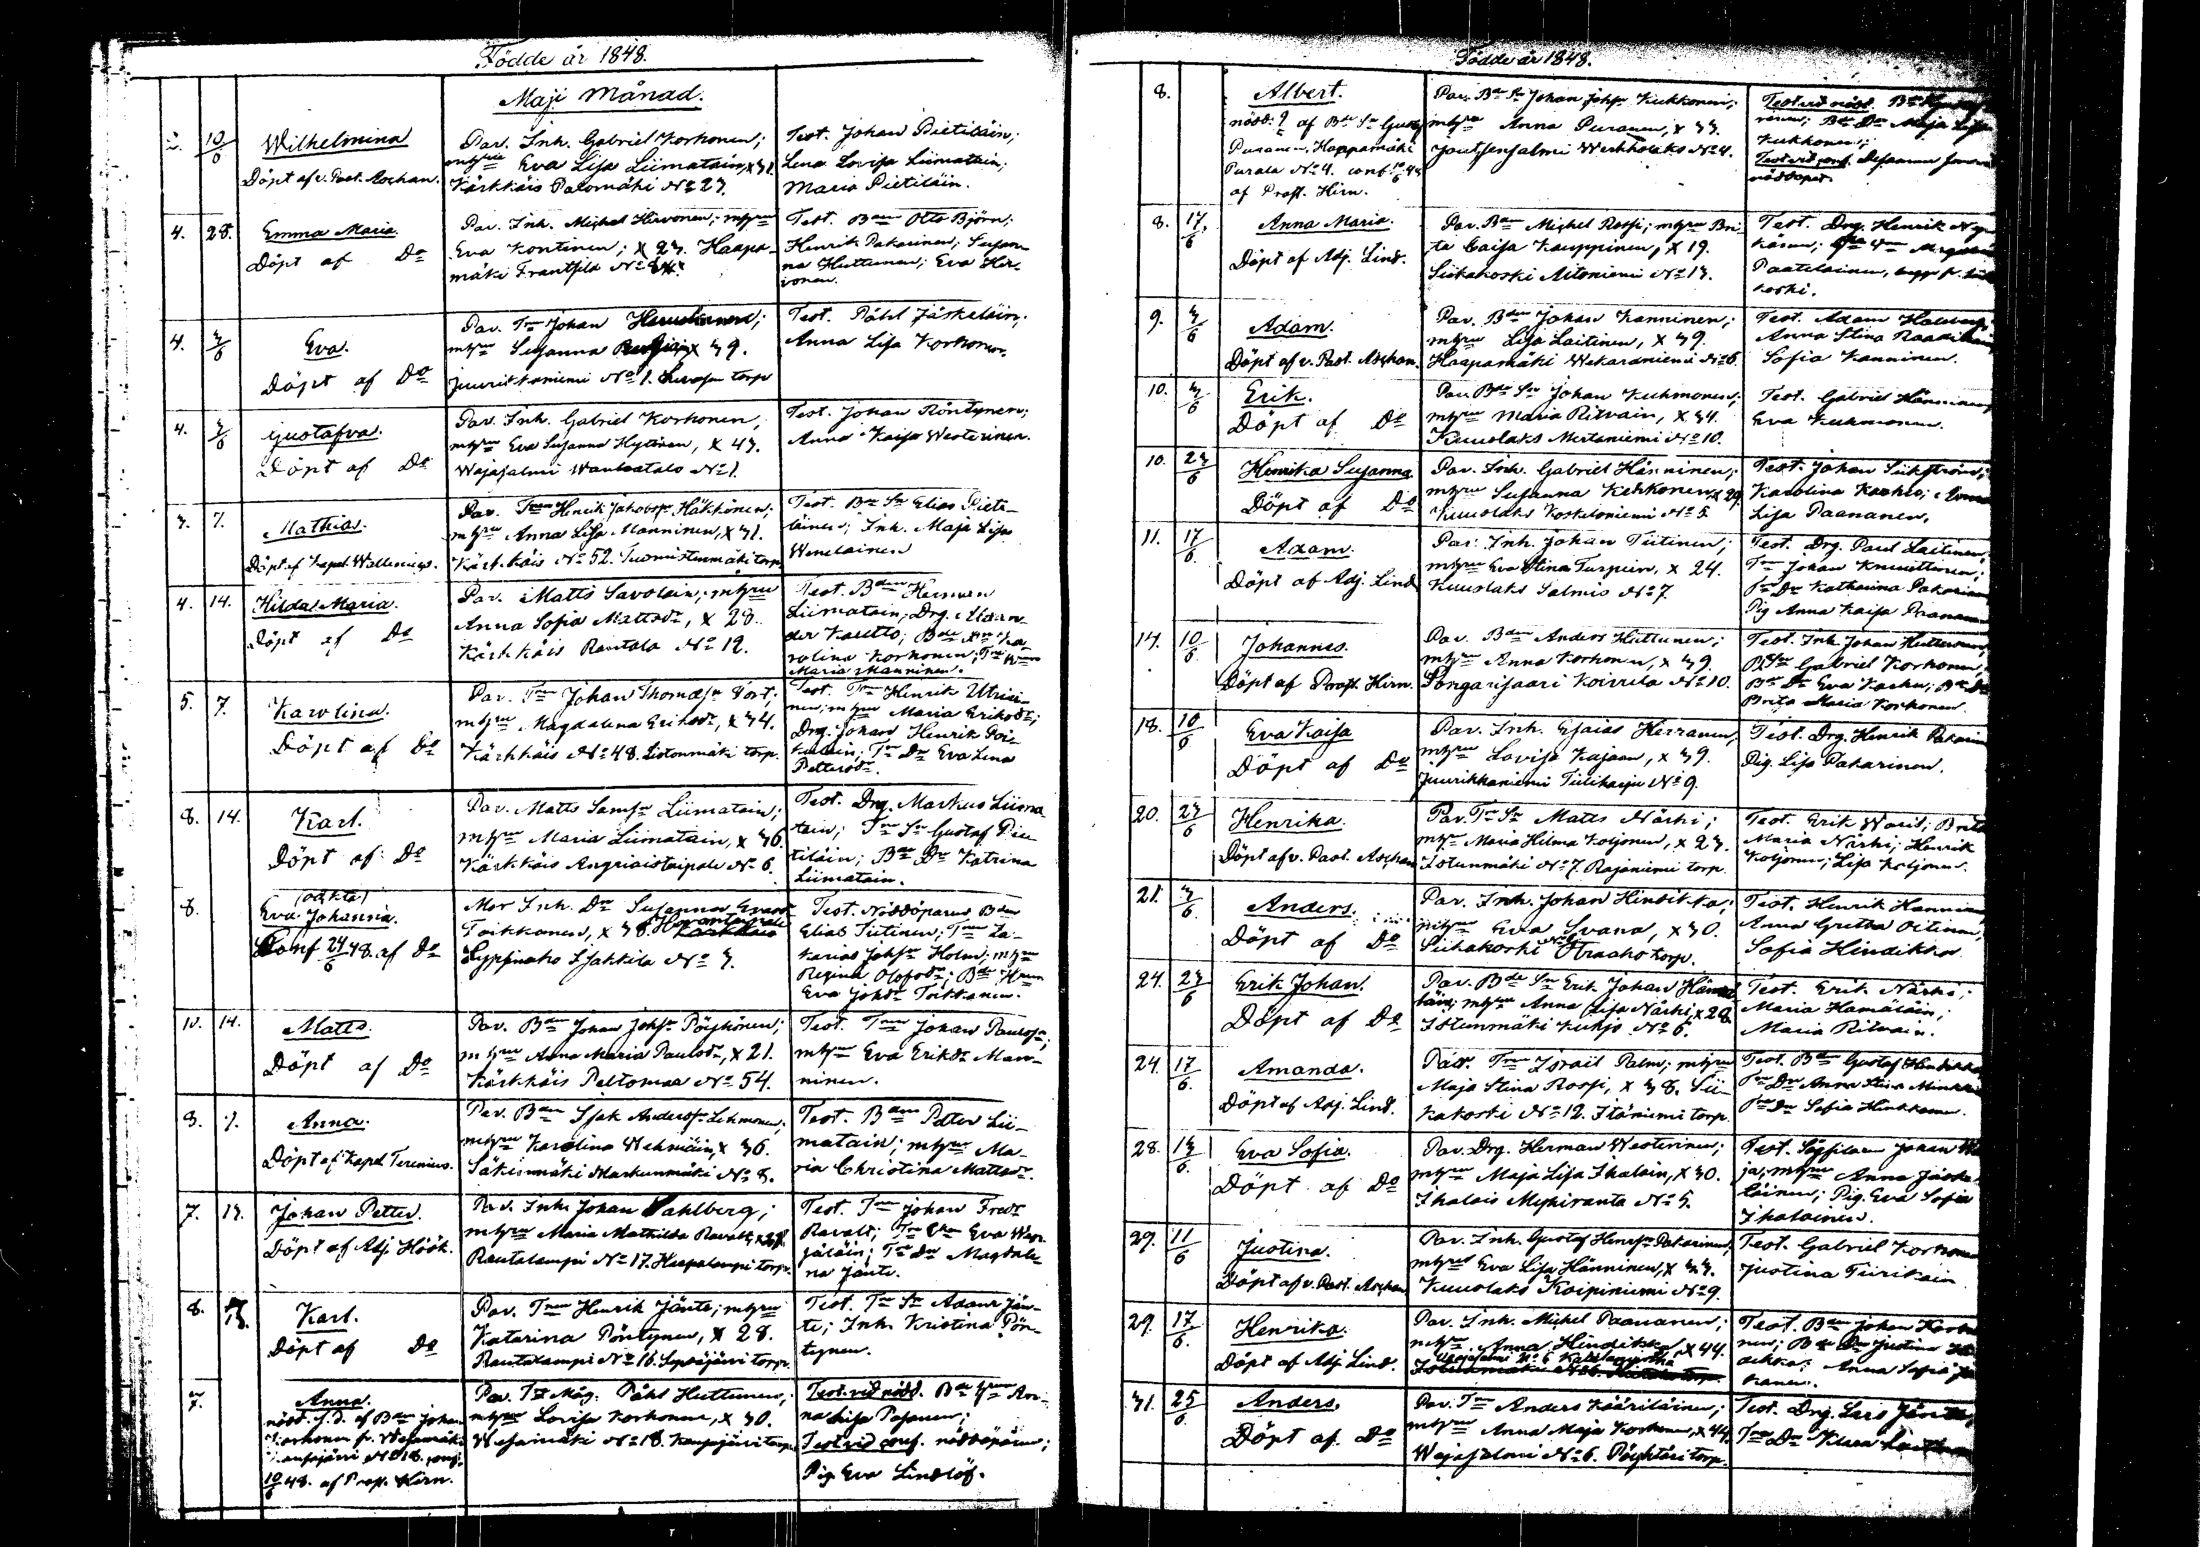 Födde år 1848.
Maji Månad.
10/6
Wilhelmina
Döpt af v. Past. Aschan.
Par. Inh. Gabriel Korhonen;
mhru Eva Lisa Liimatain, x 31.
Kärkkäis Palomäki No 27.
Test. Johan Pietiläin;
Lena Lovisa Liimatain;
Maria Pietiläin.
4. 28.
Emma Maria.
Döpt af Do
Par. Inh. Michel Hirvonen; mhru
Eva Kontinen; x 23. Haapa-
mäki Frantsila
Test. Bdn Otto Björn;
Henrik Pakarinen; Susan-
na Huttunen; Eva Hir-
vonen.
4. 3/6
Eva.
Döpt af Do
Par. Tn Johan
mhru Susanna x 39.
Juurikkaniemi No 1. torp
Test. Påhl Jäskeläin;
Anna Lisa Korhonen.
4. 3/6
Gustafva.
Döpt af Do
Par. Inh. Gabriel Korhonen,
mhru Eva Susanna Hytönen, x 43.
Wajasalmi Wanhatalo No 1.
Test. Johan Röntynen;
Anna Kaisa Westerinen.
3. 7.
Mathias.
Döpt af Kapel. Wallenius.
Par. Tmn Henrik Jakobsn Häkkinen;
mhru Anna Lisa Manninen, x 31.
Kärkkäis No 52. torp
Test. Bde Sn Elias Pieti-
läinen; Inh. Maja Lisa
Wenelainen
4. 14.
Hilda Maria.
Döpt af Do
Par. Matts Savolain; mhru
Anna Sofia Mattsdr, x 28.
Kärkkäis Rautala No 12.
Test. Bden Herman
Liimatain; Drg. Alexan-
der Kautto; Bde Dn Ka-
rolina Korhonen; Tmn
Maria Manninen.
5. 7.
Karolina.
Döpt af Do
Par. Tmn Johan Thomasn Tort;
mhru Magdalena Eriksdr, x 34.
Kärkkäis No 48. Listonmäki torp.
Test. Tmn Henrik Utriai-
nen; mhru Maria Eriksdr;
Drg. Johan Henrik Poi-
kulain; Tn Dn Eva Lena
Pettersdr.
8. 14.
Karl.
Döpt af Do
Par. Matts Samsn Liimatain;
mhru Maria Liimatain, x 36.
Kärkkäis Angriaistaipale No 6.
Test. Drg. Markus Liima-
tain; Tn Sn Gustaf Pie-
tiläin; Bde Dn Katrina
Liimatain.
8.
(oäkta)
Eva Johanna.
Conf 24/6 48. af Do
Mor Inh. Dn Susanna Evasdr
Toikkanen, x 38.
Lyssinaho Isakkila No 3.
Test. Nöddöparen Bdn
Elias Tiitinen; Tmn Za-
karias Johsn Holm; mhru
Regina Olofsdr; Bde Hrun
Eva Johdr Toikkanen.
10. 14.
Matts.
Döpt af Do
Par. Bdn Johan Johsn Pöyhönen;
mhru Anna Maria Paulsdr, x 21.
Kärkkäis Peltomaa No 54.
Test. Tmn Johan Paulsn;
mhru Eva Eriksdr Man-
ninen.
3. 7.
Anna.
Döpt af Kapel Terenius.
Par. Bdn Isak Andersn Lehmonen;
mhru Karolina Wehniäin, x 36.
Säkinmäki Markunmäki No 8.
Test. Bdn Petter Lii-
matain; mhru Ma-
ria Christina Mattsdr.
7. 13.
Johan Petter.
Döpt af Adj. Höök.
Par. Inh. Johan Wahlberg;
mhru Maria Mathilda Ravalt, x 28.
Rautalampi No 17. Haapalampi torp.
Test. Tmn Johan Fredr
Ravalt; Tn Hru Eva War-
jäläin; Tn Dn Magdale-
na Jänte.
8. 13.
Karl.
Döpt af Do
Par. Tmn Henrik Jänte; mhru
Katarina Röntynen, x 28.
Rautalampi No 16. torp.
Test. Tn Sn Adam Jän-
te; Inh. Kristina Rön-
tynen.
7.
Anna.
nödd. af Bdn Johan
Korhonen fr. Wesamäki
No 18. conf.
10/6 48. af Prost. Hirn.
Par. Måg. Påhl Huttunen;
mhru Lovisa Korhonen, x 30.
Wesamäki No 18. Kaupajärvi torp
Test. vid nödd. Bde Hrun An-
na Lisa Pasanen;
Test. vid conf. nöddöparen;
Pig. Eva Lindlöf.
Födde år 1848.
8.
Albert.
nödd. af Bde Sn Gustaf
Puranen, Happamäki
Purala No 4. conf. 10/6 48
af Prost. Hirn.
Par. Bde Sn Johan Johsn Kukkonen;
mhru Anna Puranen, x 33.
Joutsensalmi No 4.
Test. vid nödd.
Bde Dn Maja Lisa
Kukkonen;
Test. vid conf.
nöddopet.
8. 17/6
Anna Maria.
Döpt af Adj. Lind.
Par. Bdn Michel Rossi; mhru Bri-
ta Caisa Kauppinen, x 19.
Siikakoski Aitoniemi No 13.
Test. Drg. Henrik
Paatelainen,
koski.
9. 3/6
Adam.
Döpt af v. Past. Aschan.
Par. Bdn Johan Kanninen;
mhru Lisa Laitinen, x 39.
Haapamäki Wekaraniemi No 6.
Test. Adam
Anna Stina
Sofia Kanninen.
10. 3/6
Erik.
Döpt af Do
Par. Bde Sn Johan Kuhmonen;
mhru Maria Ritvain, x 34.
Kuuslaks Mertaniemi No 10.
Test. Gabriel Hänninen
Eva Kuhmonen.
10. 23/6
Henrika Susanna
Döpt af Do
Par. Inh. Gabriel Hänninen;
mhru Susanna Kekkonen, x 29.
Kuuslaks Koskeloniemi No 5.
Test. Johan
Karolina
Lisa Paananen.
11. 17/6
Adam.
Döpt af Adj. Lind
Par. Inh. Johan Tiitinen;
mhru Eva Stina Turpein, x 24.
Kuuslaks Salmis No 7.
Test. Drg. Paul Laitinen
Tn Johan Knuuttinen;
Tn Dn Katharina
Pig Anna Kaisa
17. 10/6
Johannes.
Döpt af Prost. Hirn.
Par. Bdn Anders Huttunen;
mhru Anna Korhonen, x 39.
Songarisaari Koirrila No 10.
Test. Inh. Johan
Gabriel Korhonen,
Bde Dn Eva
Brita Maria Korhonen.
18. 10/6
Eva Kaisa
Döpt af Do
Par. Inh. Esaias Herranen,
mhru Lovisa Kajaan, x 39.
Juurikkaniemi Tiilikasju No 9.
Test. Drg. Henrik
Pig. Lisa Pakarinen.
20. 23/6
Henrika.
Döpt af v. Past. Aschan
Par. Tn Sn Matts Närhi;
mhru Maria Hilma Koljonen, x 23.
Istunmäki No 7. Rajaniemi torp.
Test. Erik Brita
Maria Närhi; Henrik
Koljonen; Lisa Koljonen.
21. 3/6
Anders.
Döpt af Do
Par. Inh. Johan Hindikka;
mhru Eva Svana, x 30.
Siikakoski Otraaho torp.
Test. Henrik
Anna Gretha Oitinen,
Sofia Hindikka
24. 23/6
Erik Johan.
Döpt af Do
Par. Bde Sn Erik Johan Hämä-
läin; mhru Anna Lisa Närhi, x 28.
Istunmäki No 6.
Test. Erik Närhi;
Maria Hämäläin;
Maria Ritvain.
24. 17/6.
Amanda.
Döpt af Adj. Lind.
Par. Tmn Israil Palm; mhru
Maja Stina Rossi, x 38. Sii-
kakoski No 12. Itäniemi torp.
Test. Bdn Gustaf
Tn Dn Anna Stina
Tn Dn Sofia
28. 13/6.
Eva Sofia.
Döpt af Do
Par. Drg. Herman Westerinen;
mhru Maja Lisa Ihalain, x 30.
Ihalais Myhiranta No 5.
Test. Johan
mhru Anna Jäske-
läinen; Pig. Eva Sofia
Ihalainen.
29. 11/6
Justina.
Döpt af v. Past. Aschan
Par. Inh. Gustaf Henrsn Pakarinen,
mhru Eva Lisa Hänninen, x 33.
Kuuslaks Koipiniemi No 9.
Test. Gabriel
Justina Tiirikain
29. 17/6.
Henrika.
Döpt af Adj. Lind.
Par. Inh. Michel Paananen;
mhru Anna Hindikka, x 44.
Wajasalmi No 6
Test. Bdn Johan
Bde Dn Justina
Anna Sofia
31. 25/6
Anders.
Döpt af Do
Par. Tn Anders Kääriläinen;
mhru Anna Maja Korhonen, x 44.
Wajasalmi No 6. torp.
Test. Drg. Lars
Tmn Dn Klara